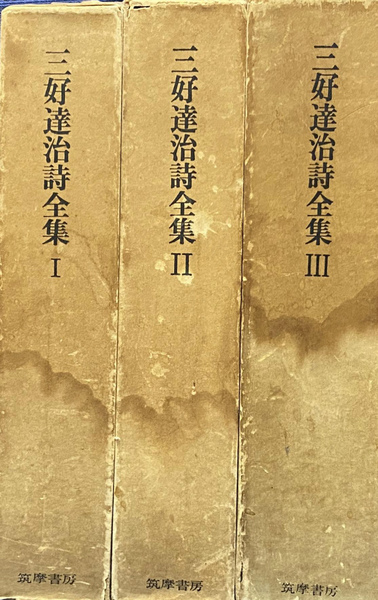 三好達治詩全集 I
筑摩書房
三好達治詩全集 II
筑摩書房
三好達治詩全集 III
筑摩書房